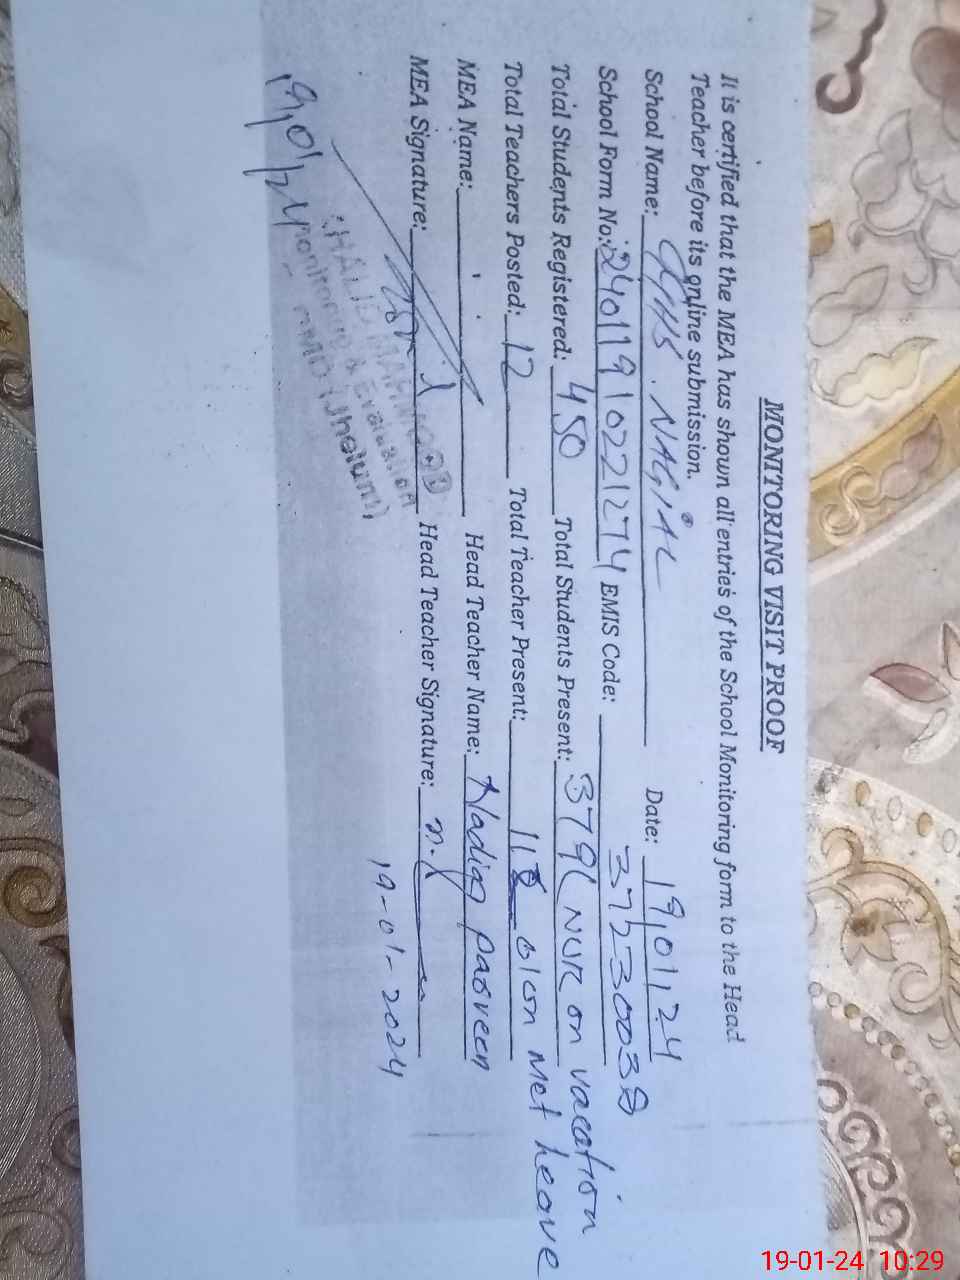 MONITORING VISIT PROOF
It is certified that the MEA has shown all entries of the School Monitoring form to the Head
Teacher before its online submission.
School Name: GHS. NAGIAL Date: 19/01/24
School Form No: 24011910221274 EMIS Code: 37230038
Total Students Registered: 450 Total Students Present: 379 ( NUR on vacation
Total Teachers Posted: 12 Total Teacher Present: 11 01 on Met leave
MEA Name: Head Teacher Name: Nadia Parveen
MEA Signature: Head Teacher Signature: n.
19-01-2024
KHALID MAHMOOD
Monitoring & Evaluation
(Jhelum)
19/01/24
19-01-24 10:29